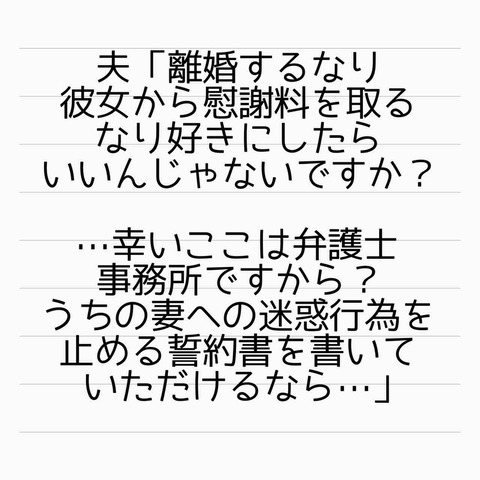 夫「離婚するなり
彼女から慰謝料を取る
なり好きにしたら
いいんじゃないですか？
…幸いここは弁護士
事務所ですから？
うちの妻への迷惑行為を
止める誓約書を書いて
いただけるなら…」